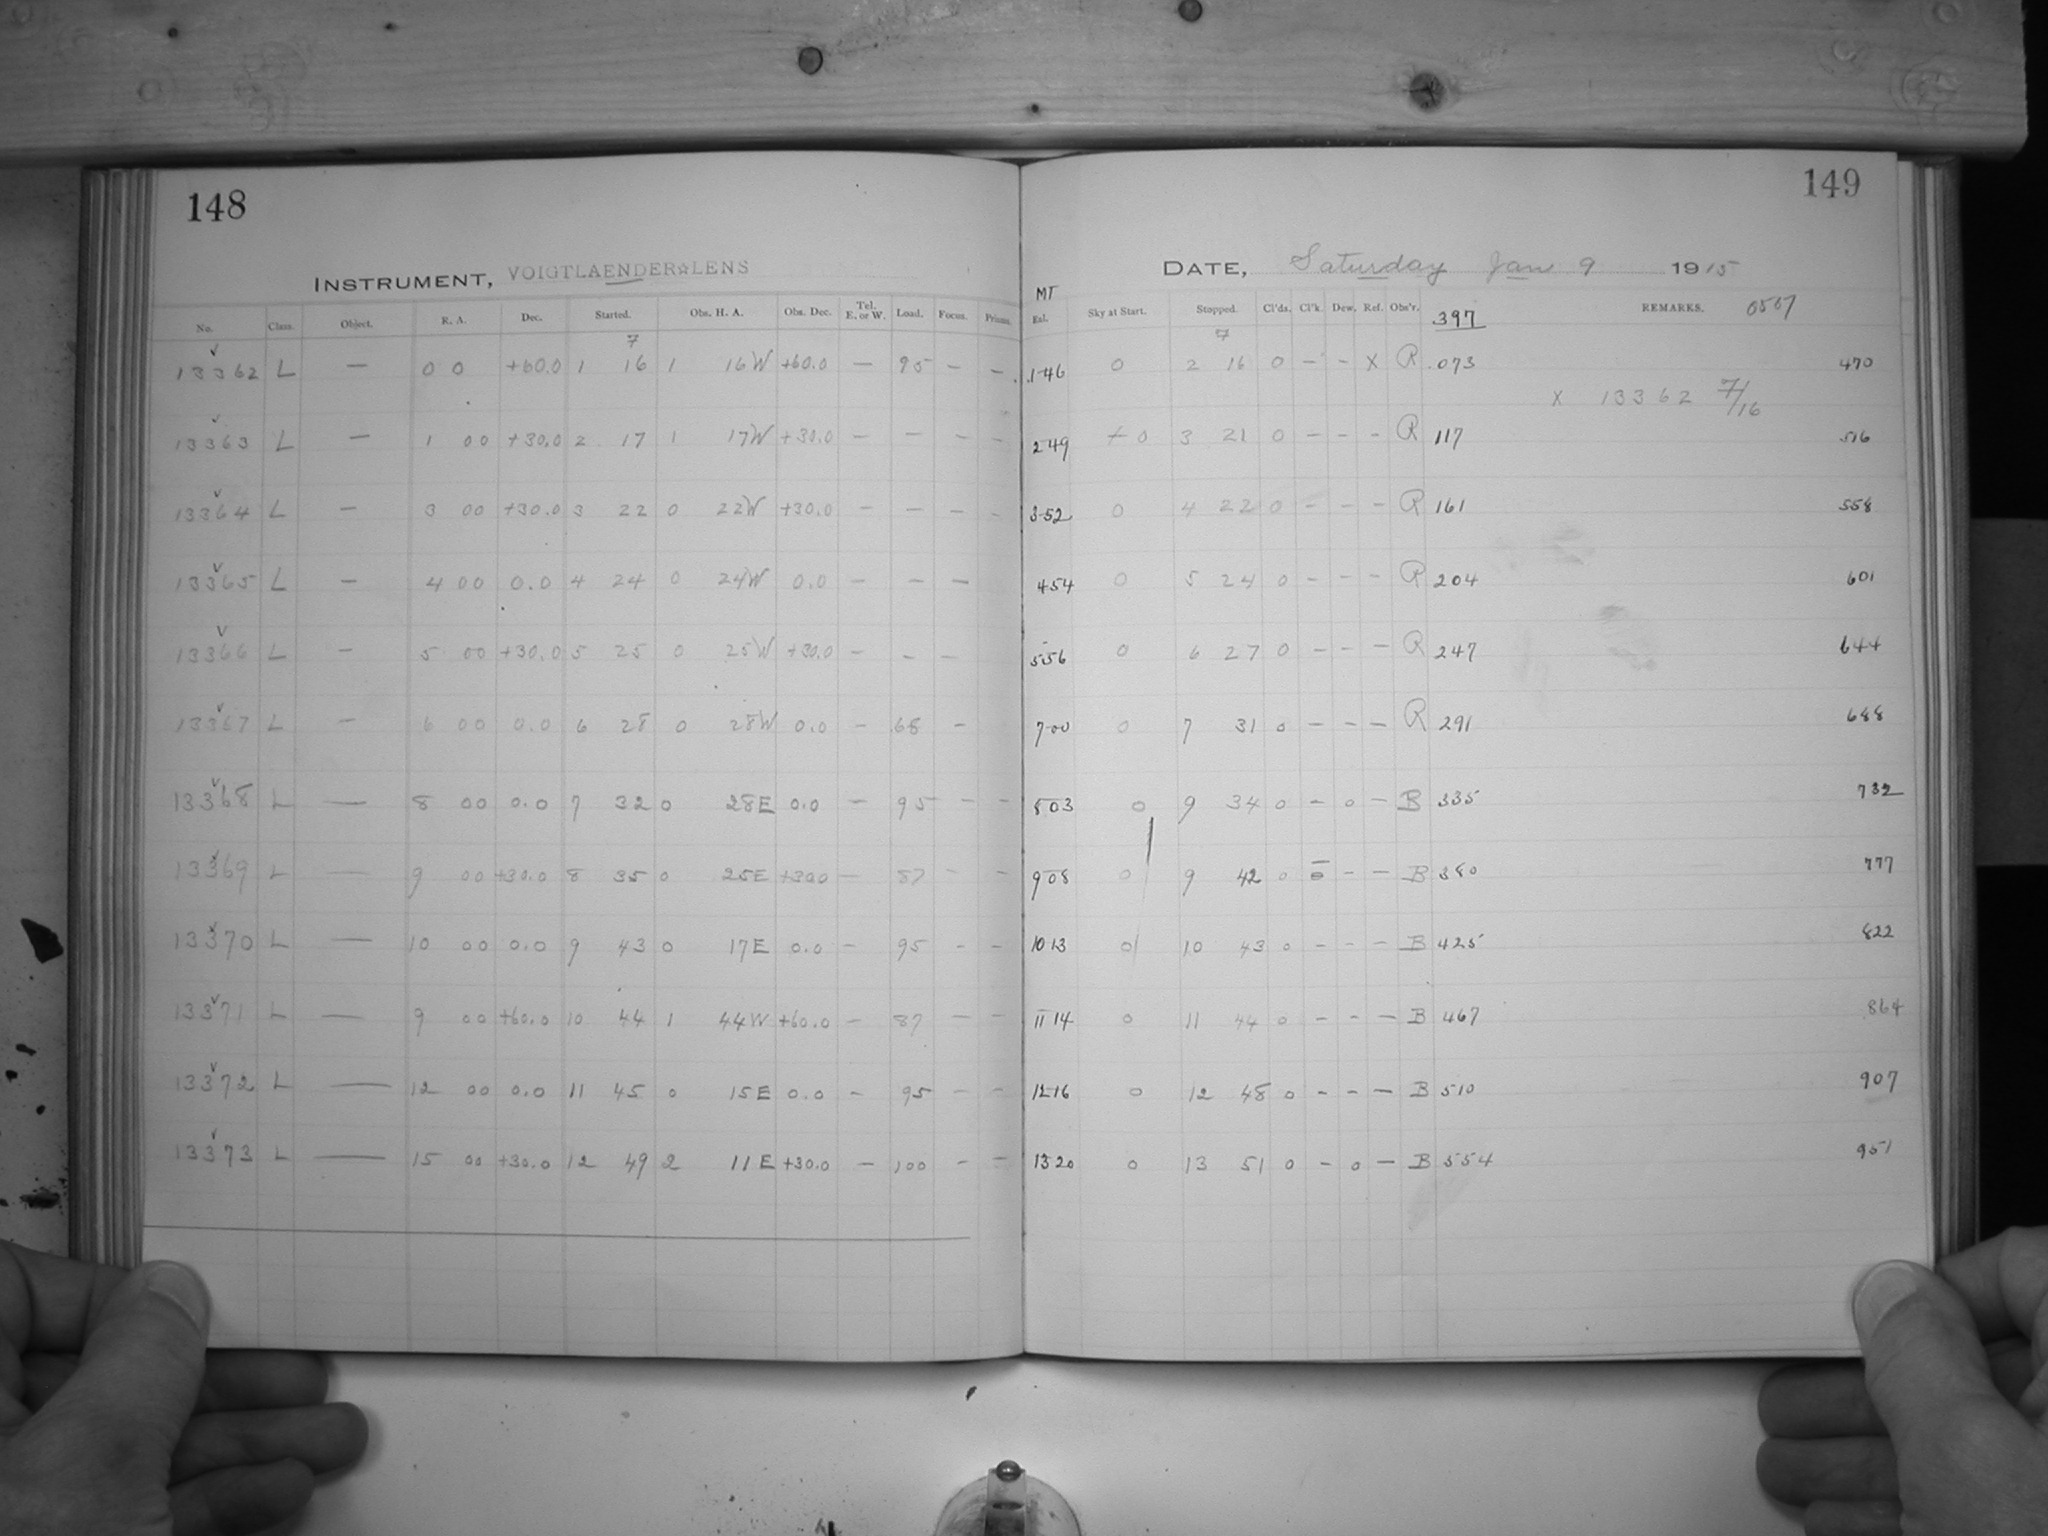 148
149
INSTRUMENT, VOIGTLAENDER☆LENS
DATE, Saturday Jan 9 1915
No. Class. Object. R. A. Dec. Started. Obs. H. A. Obs. Dec. Tel. E. or W. Load. Focus. Prisms. MT Exl. Sky at Start. Stopped. Cl'ds. Cl'k. Dew. Ref. Obs'r. 397 REMARKS. 0507
7 7
13362 L — 0 0 +60.0 1 16 1 16W +60.0 — 95 – – 1 46 0 2 16 0 – – X R .073 470
X 13362 7/16
13363 L — 1 00 +30.0 2 17 1 17W +30.0 – – – – 2 49 + 0 3 21 0 – – – R 117 516
13364 L — 3 00 +30.0 3 22 0 22W +30.0 – – – – 3 52 0 4 22 0 – – – R 161 558
13365 L — 4 00 0.0 4 24 0 24W 0.0 – – – 4 54 0 5 24 0 – – – R 204 601
13366 L — 5 00 +30.0 5 25 0 25W +30.0 – – – 5 56 0 6 27 0 – – – R 247 644
13367 L — 6 00 0.0 6 28 0 28W 0.0 – 68 – 7 00 0 7 31 0 – – – R 291 688
13368 L — 8 00 0.0 7 32 0 28E 0.0 – 95 – – 8 03 0 9 34 0 – 0 – B 335 732
13369 L — 9 00 +30.0 8 35 0 25E +30.0 – 87 – – 9 08 0 9 42 0 – – – B 380 777
13370 L — 10 00 0.0 9 43 0 17E 0.0 – 95 – – 10 13 0 10 43 0 – – – B 425 822
13371 L — 9 00 +60.0 10 44 1 44W +60.0 – 87 – – 11 14 0 11 44 0 – – – B 467 864
13372 L — 12 00 0.0 11 45 0 15E 0.0 – 95 – – 12 16 0 12 48 0 – – – B 510 907
13373 L — 15 00 +30.0 12 49 2 11E +30.0 – 100 – – 13 20 0 13 51 0 – 0 – B 554 951